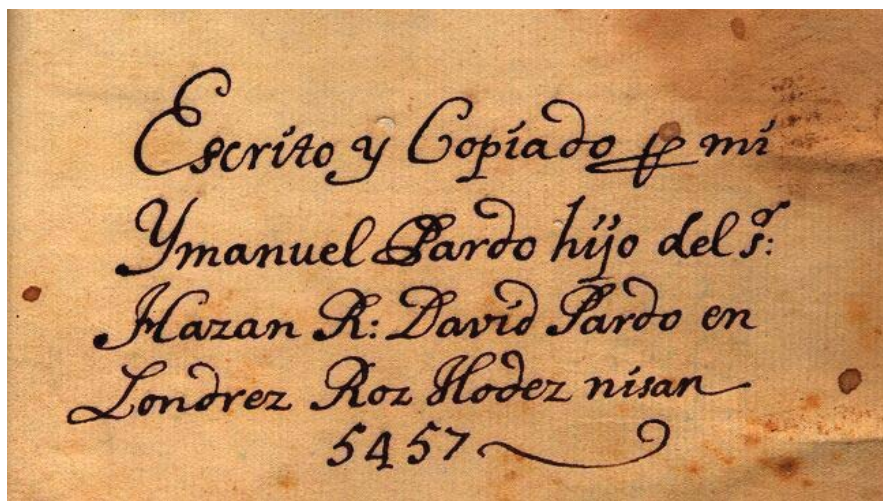 Escrito y Copiado ꝑ mi
Ymanuel Pardo hijo del s.r:
Hazan R: David Pardo en
Londrez Roz Hodez nisan
5457